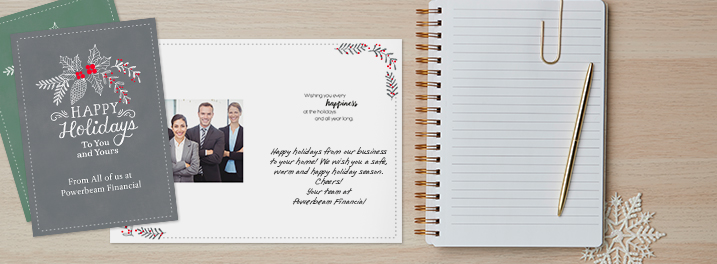 HAPPY
Holidays
To You
and Yours
From All of us at
Powerbeam Financial
Wishing you every
happiness
at the holidays
and all year long.
Happy holidays from our business
to your home! We wish you a safe,
warm and happy holiday season.
Cheers!
Your team at
Powerbeam Financial